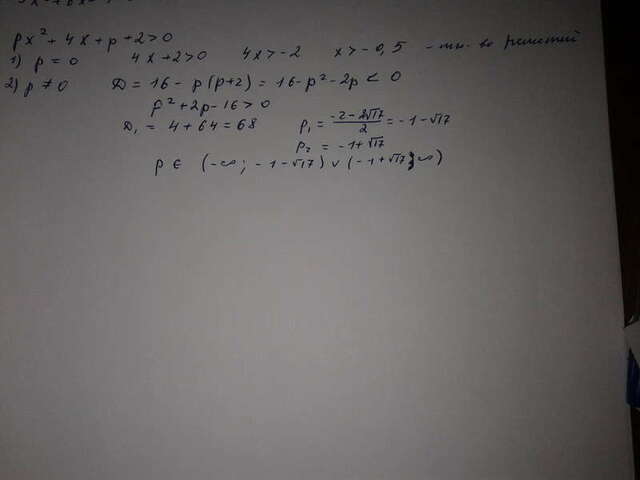 px² + 4x + p + 2 > 0
1) p = 0 4x + 2 > 0 4x > -2 x > -0,5 - мн-во решений
2) p ≠ 0 D = 16 - p(p+2) = 16 - p² - 2p < 0
p² + 2p - 16 > 0
D₁ = 4 + 64 = 68 p₁ = (-2 - 2√17)/2 = -1 - √17
p₂ = -1 + √17
p ∈ (-∞; -1 - √17) ∪ (-1 + √17; ∞)